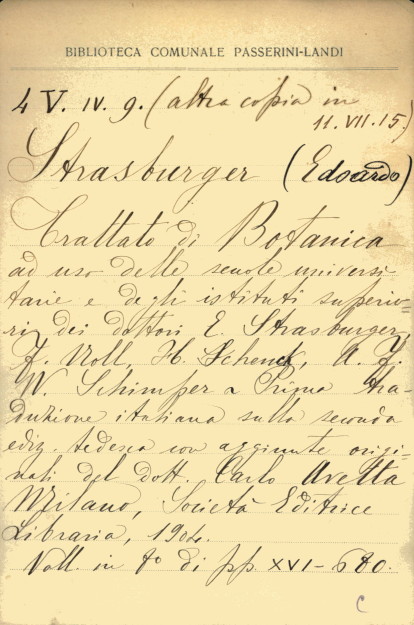 BIBLIOTECA COMUNALE PASSERINI-LANDI
4 V. IV. 9. (altra copia in
11. VII. 15)
Strasburger (Edoardo)
Trattato di Botanica
ad uso delle scuole universi-
tarie e degli istituti superio-
ri dei dottori E. Strasburger,
F. Noll, H. Schenck, A. F.
W. Schimper. Prima tra-
duzione italiana sulla seconda
ediz. tedesca con aggiunte origi-
nali del dott. Carlo Avetta
Milano, Società Editrice
Libraria, 190
Voll. in 8° di pp. XVI-680.
C